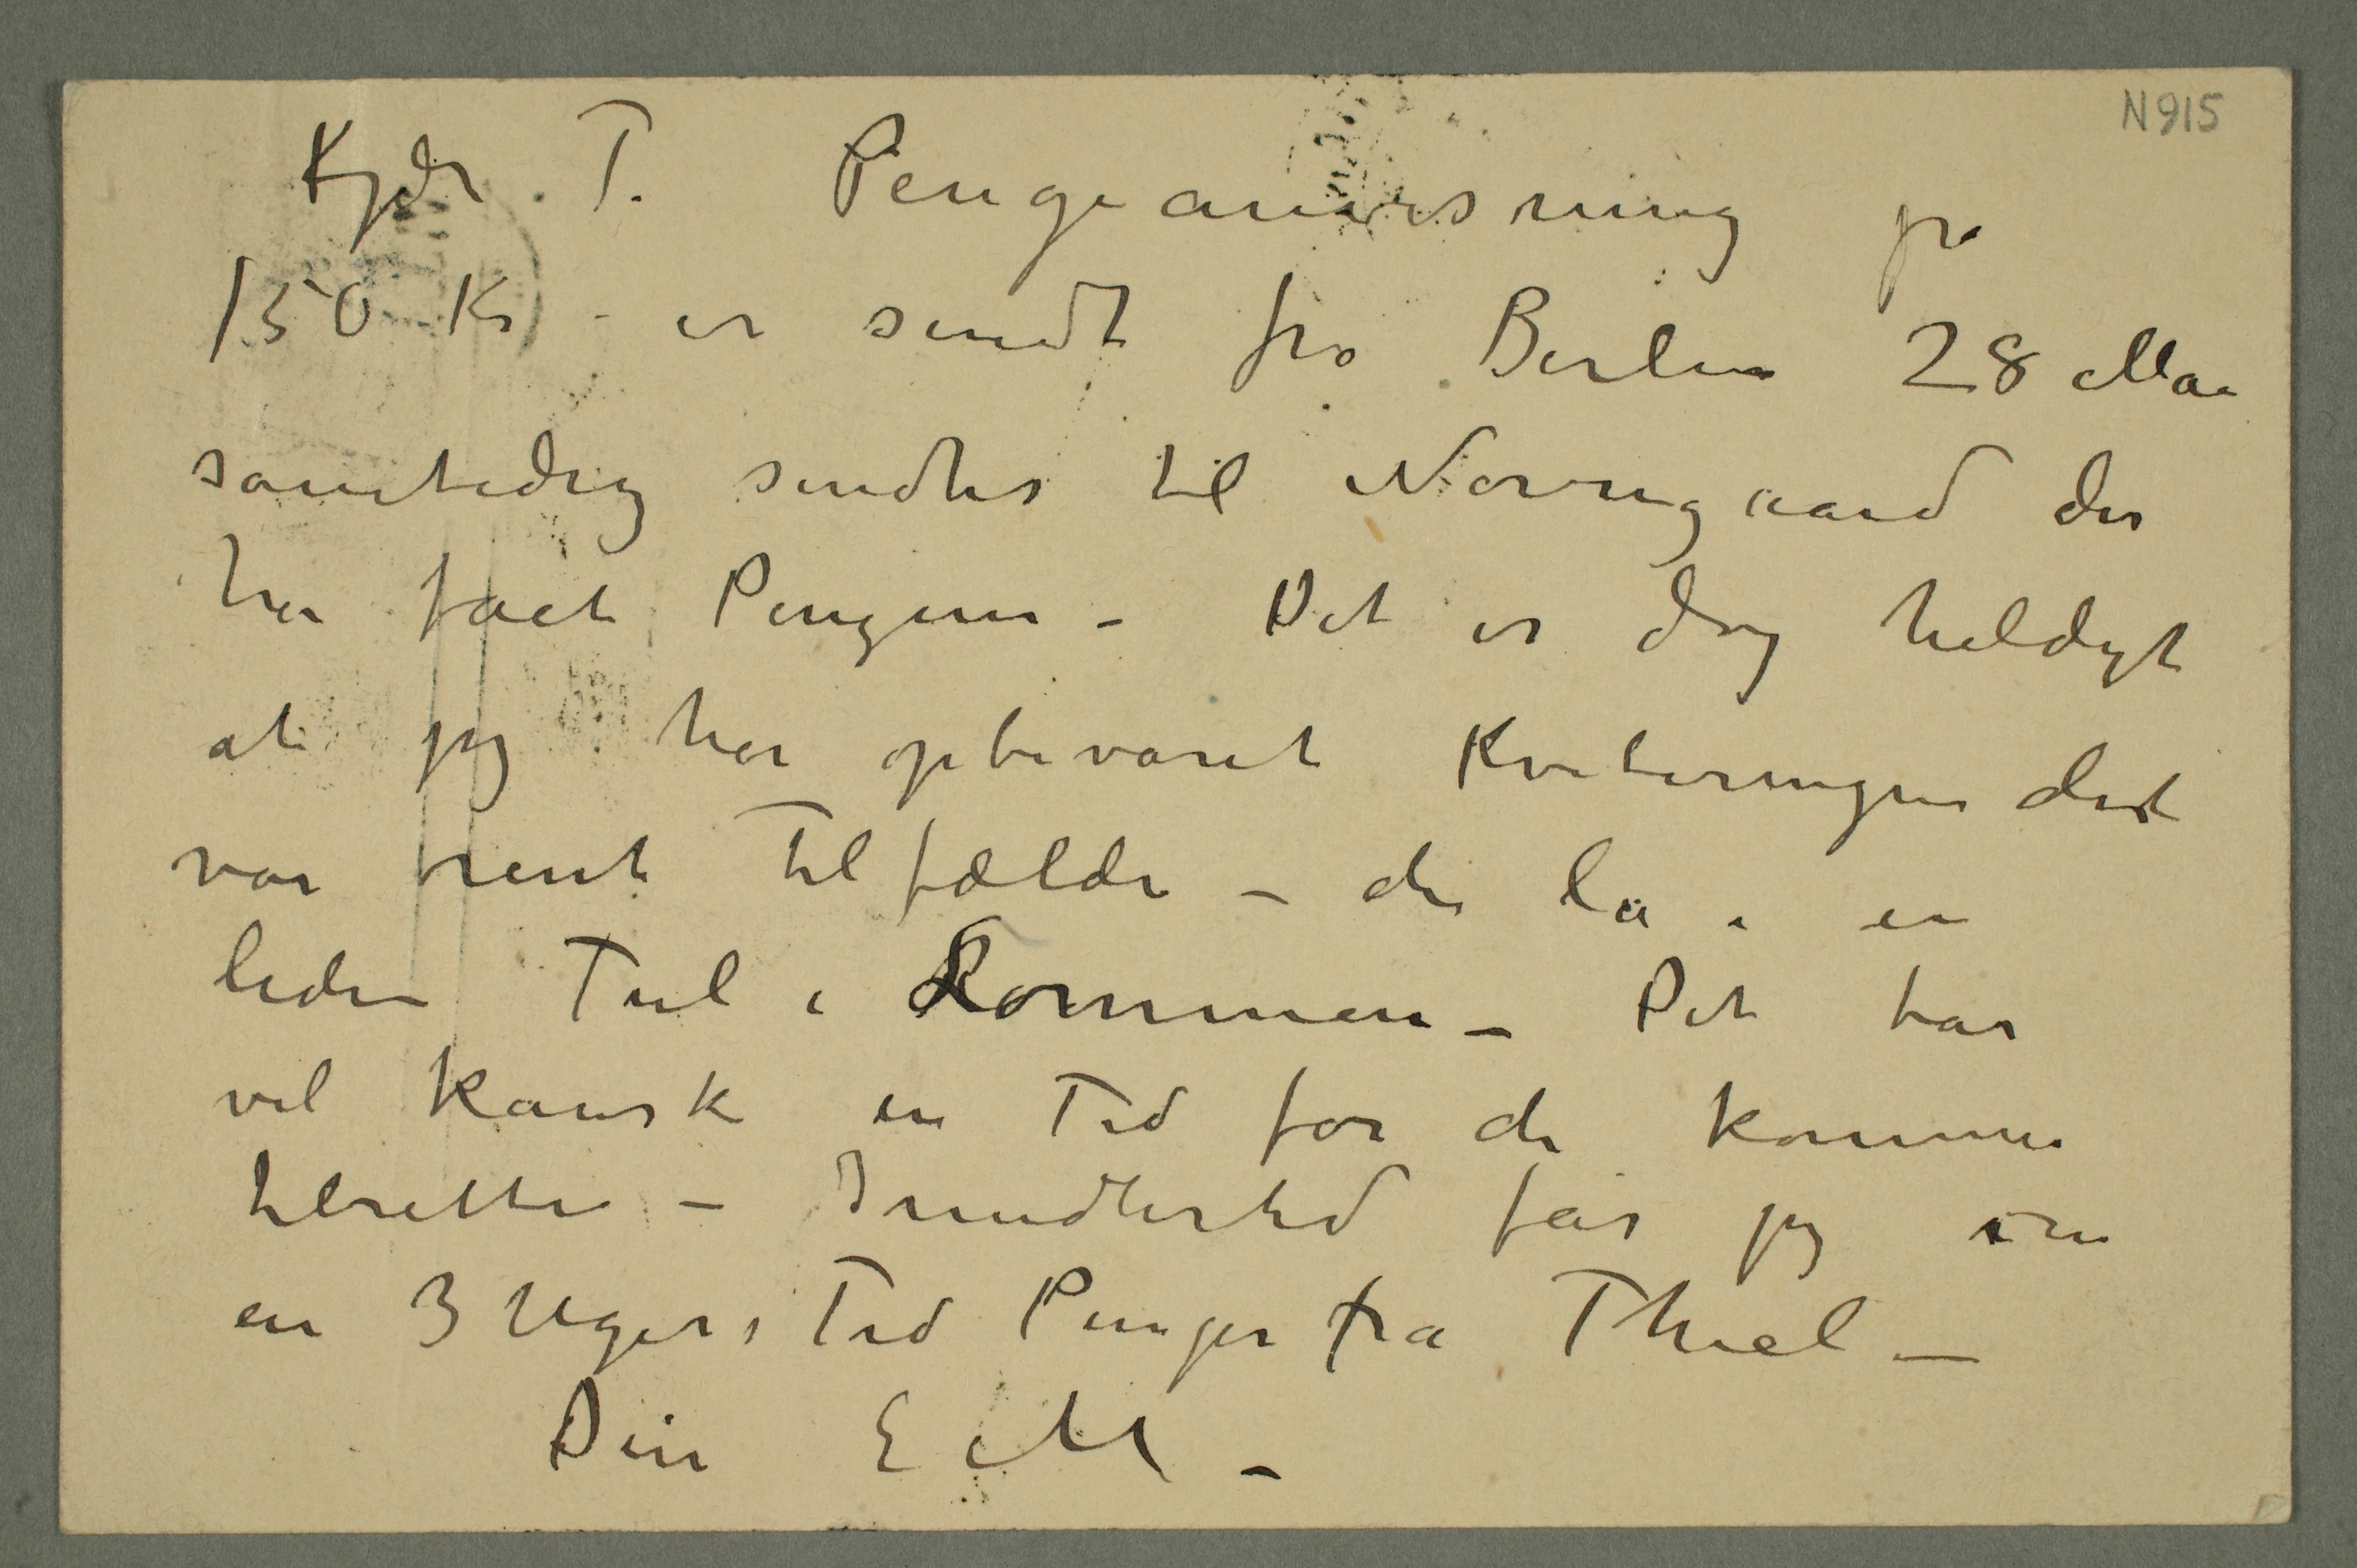 N 915
Kjære T. Pengeanvisning på
150 Kr – er sendt fra Berlin 28 Mai
samtidig sendtes til Nørregaard der
har fået Pengene – Det er dog heldigt
at jeg har opbevaret Kviteringen det
var trent Tilfælde – den lå i en
liden Pul i Lommen – Det tar
vel kansk en Tid før de kommer
tilrette – Imidlertid får jeg om
en 3 Ugers Tid Penger fra Thiel –
Din E M –